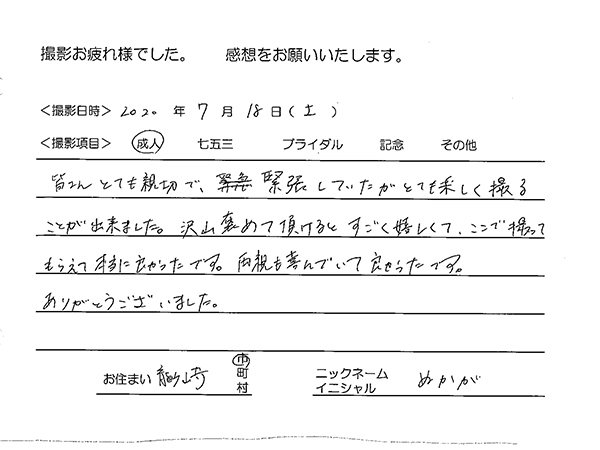 撮影お疲れ様でした。 感想をお願いいたします。
<撮影日時> 2020 年 7 月 18 日 (土)
<撮影項目> 成人 七五三 ブライダル 記念 その他
皆さんとても親切で、緊張していたがとても楽しく撮る
ことが出来ました。沢山褒めて頂けるとすごく嬉しくて、ここで撮って
もらえて本当に良かったです。両親も喜んでいて良かったです。
ありがとうございました。
お住まい 龍ヶ崎 市 町 村 ニックネーム イニシャル ぬかが